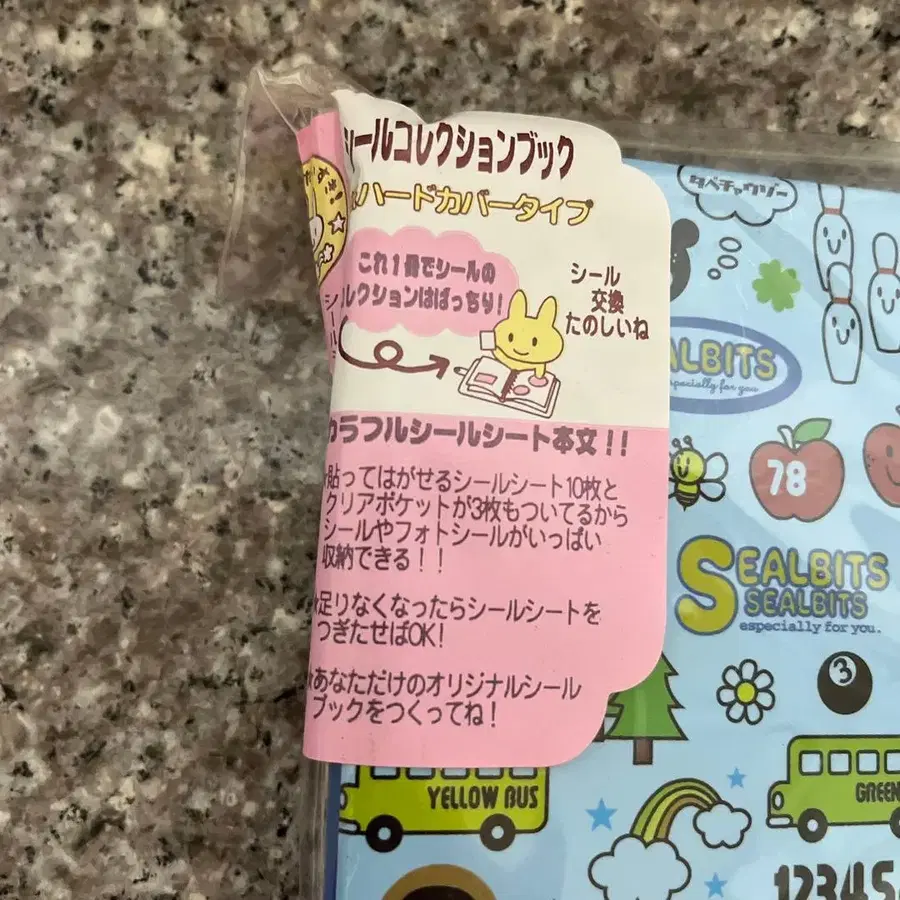 シールコレクションブック
ハードカバータイプ
これ1冊でシールの
コレクションはばっちり!
シール
交換
たのしいね
カラフルシールシート本文!!
貼ってはがせるシールシート10枚と
クリアポケットが3枚もついてるから
シールやフォトシールがいっぱい
収納できる!!
足りなくなったらシールシートを
つぎたせばOK!
あなただけのオリジナルシール
ブックをつくってね!
タベチャウゾー
ALBITS
especially for you
78
SEALBITS
SEALBITS
especially for you.
3
YELLOW BUS
GREEN
12345